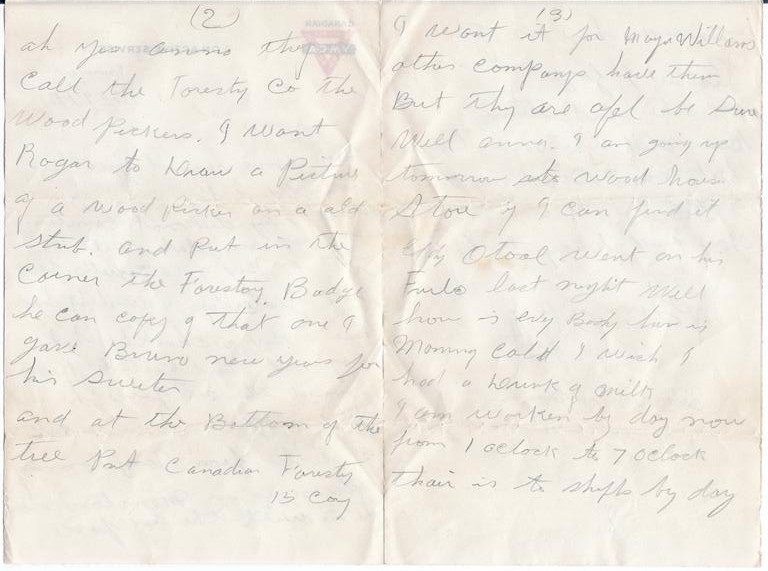 (2)
ah yes anna they
Call the Foresty Co the
Wood Pickers. I want
Rogar to Draw a Picture
of a wood picker on a old
stub. and Put in the
Corner the Forestoy Badge
he can copy of that one I
gave Bruno new years for
his sweeter
and at the Bottom of the
tree Put Canadian Foresty
15 Coy
(3)
I want it for Mayr Willams
other companys have them
But thy are afel be Sure
Well anna. I am going up
tomorrow to wood house
Store if I can find it
Otool went on his
Furlo last night Well
how is evry Body how is
Mommy Cold I wish I
had a Drink of milk
I am worken by day now
from 1 oclock to 7 oclock
thair is to shifts by day